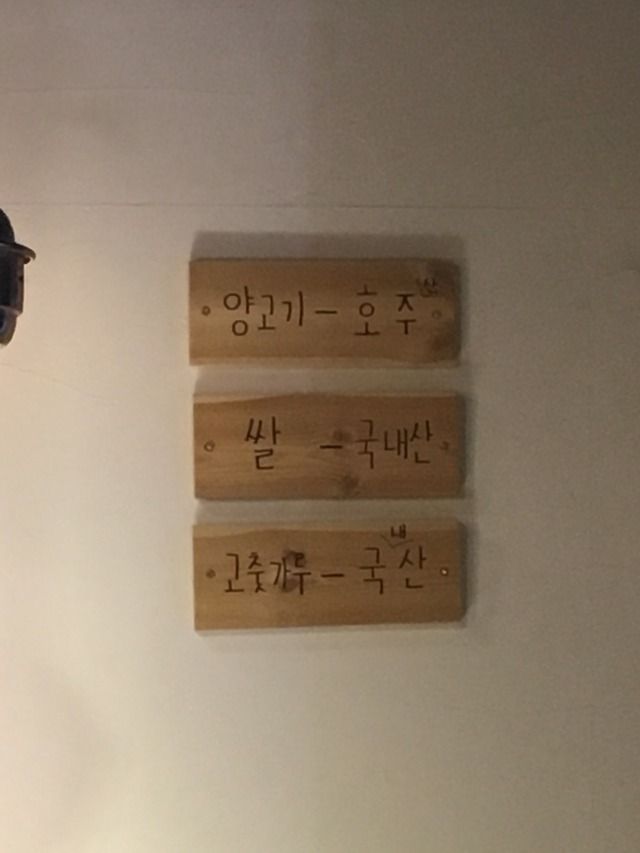 양고기 - 호주산
쌀 - 국내산
고춧가루 - 국내산